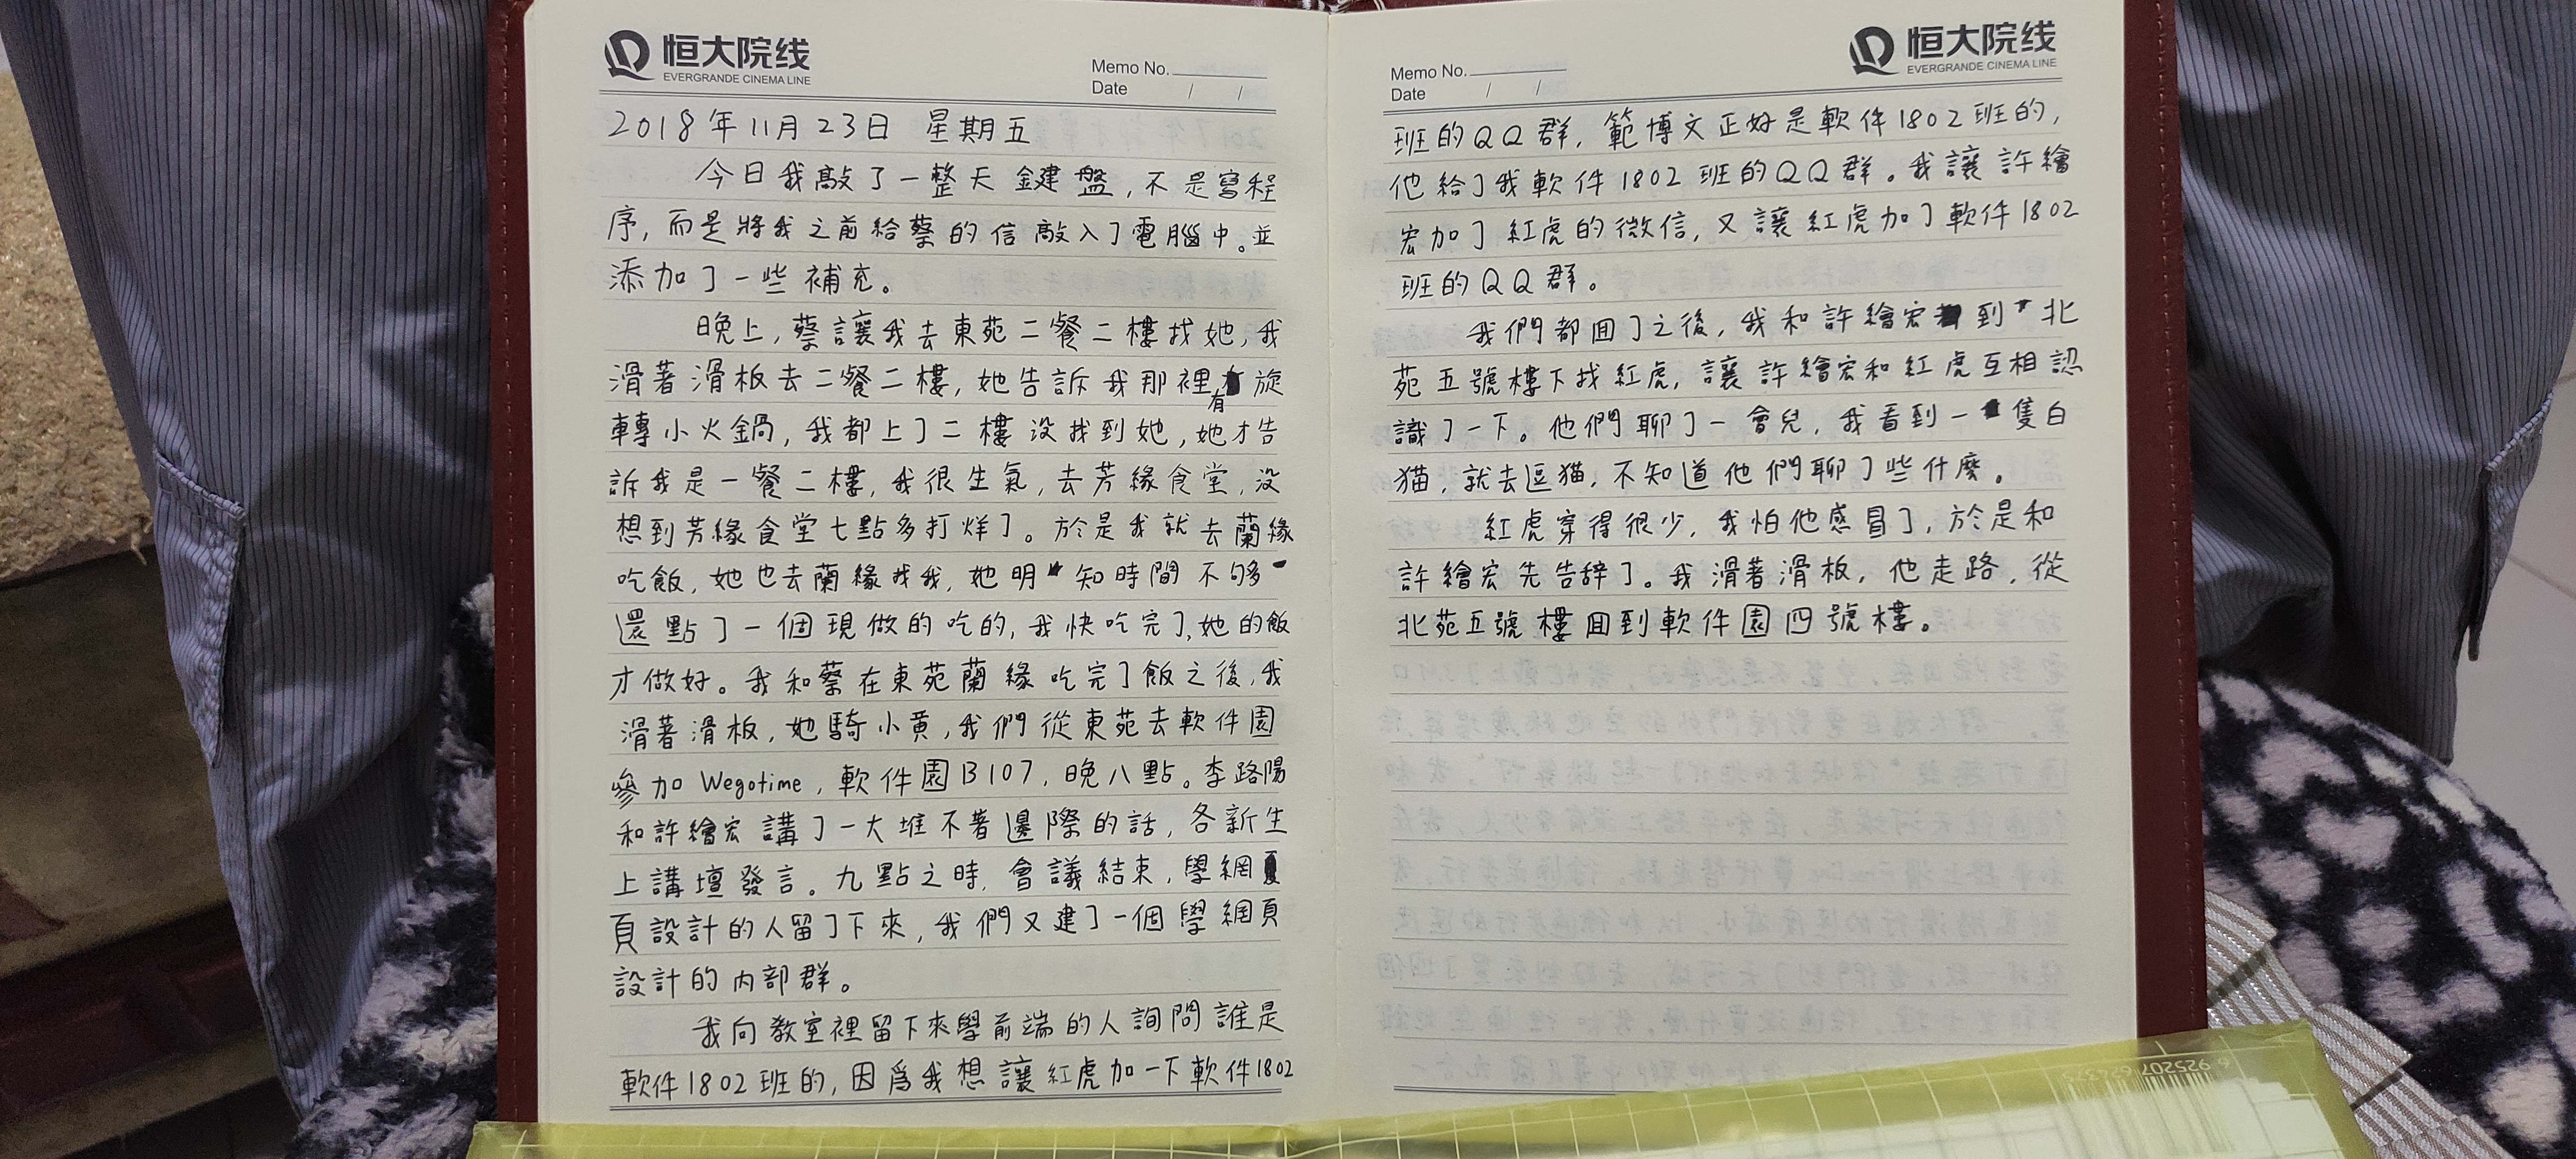 恒大院线
EVERGRANDE CINEMA LINE
Memo No.
Date / /
2018年11月23日 星期五
今日我敲了一整天鍵盤,不是寫程
序,而是將我之前給蔡的信敲入了電腦中。並
添加了一些補充。
晚上,蔡讓我去東苑二餐二樓找她,我
滑著滑板去二餐二樓,她告訴我那裡有旋
轉小火鍋,我都上了二樓没找到她,她才告
訴我是一餐二樓,我很生氣,去芳緣食堂,没
想到芳緣食堂七點多打烊了。於是我就去蘭緣
吃飯,她也去蘭緣找我,她明知時間不够
還點了一個現做的吃的,我快吃完了,她的飯
才做好。我和蔡在東苑蘭緣吃完了飯之後,我
滑著滑板,她騎小黄,我們從東苑去軟件園
參加Wegotime,軟件園B107,晚八點。李路陽
和許繪宏講了一大堆不著邊際的話,各新生
上講壇發言。九點之時,會議結束,學網
頁設計的人留了下來,我們又建了一個學網頁
設計的内部群。
我向教室裡留下來學前端的人詢問誰是
軟件1802班的,因爲我想讓紅虎加一下軟件1802
恒大院线
EVERGRANDE CINEMA LINE
Memo No.
Date / /
班的QQ群,範博文正好是軟件1802班的,
他給了我軟件1802班的QQ群。我讓許繪
宏加了紅虎的微信,又讓紅虎加了軟件1802
班的QQ群。
我們都回了之後,我和許繪宏到北
苑五號樓下找紅虎,讓許繪宏和紅虎互相認
識了一下。他們聊了一會兒,我看到一隻白
猫,就去逗猫,不知道他們聊了些什麼。
紅虎穿得很少,我怕他感冒了,於是和
許繪宏先告辞了。我滑著滑板,他走路,從
北苑五號樓回到軟件園四號樓。